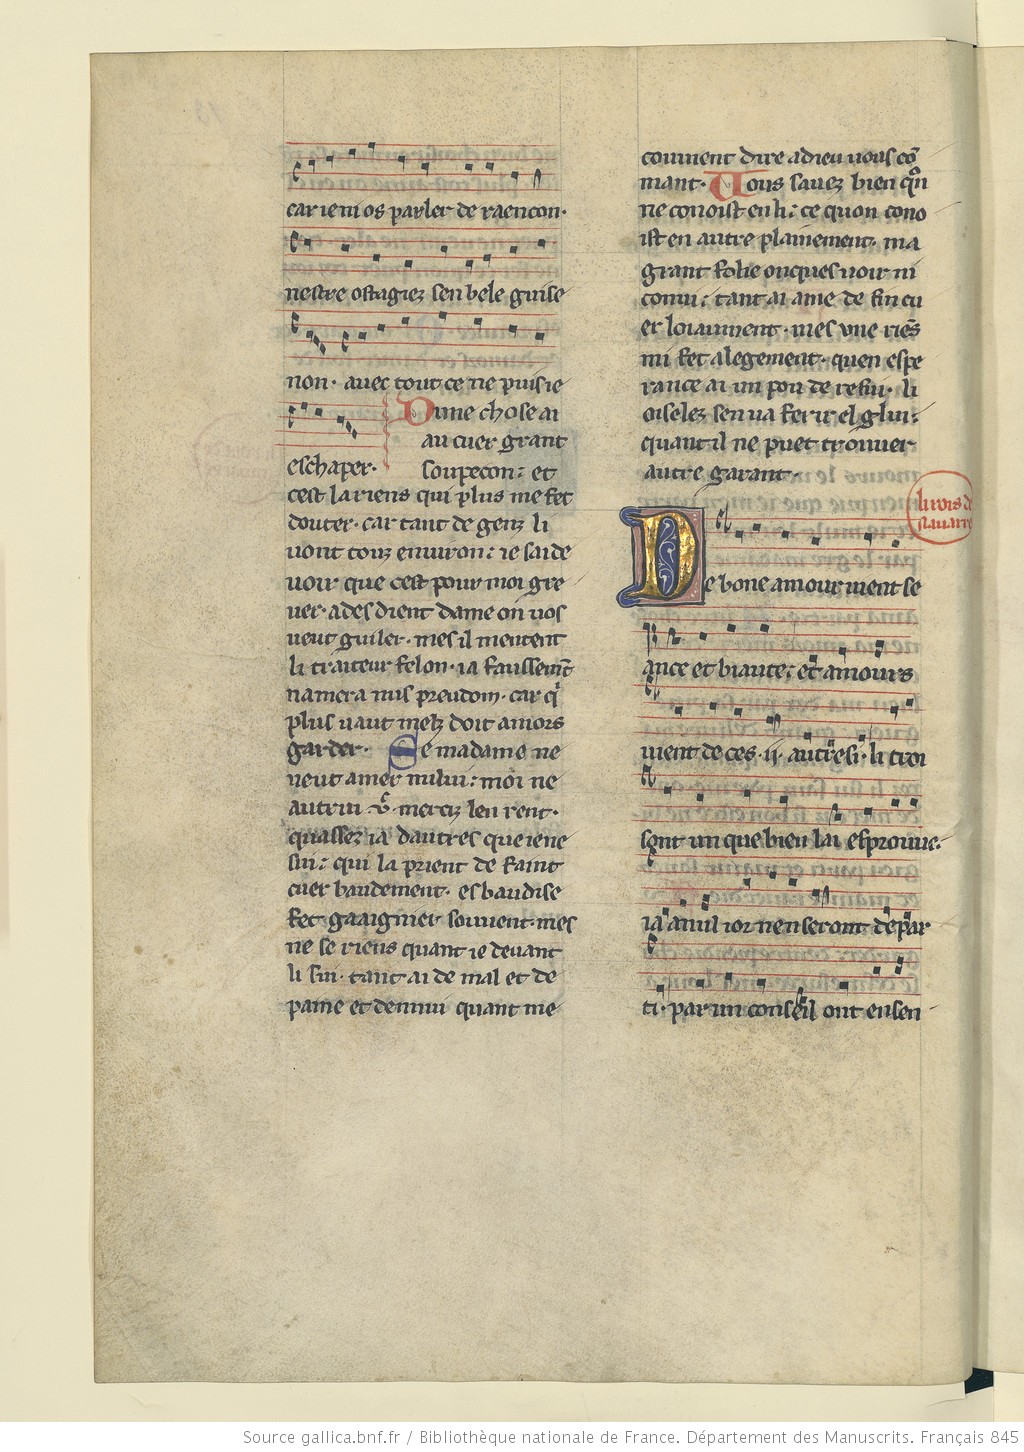 car ie ni os parler de raencon.
nestre ostagiez sen bele guise
non. avec tout ce ne puis ie
eschaper.
Dune chose ai
au cuer grant
soupecon: et
cest la riens qui plus me fet
douter. car tant de genz li
vont touz environ: ie sai de
voir que cest pour moi gre
ver. ades dient dame on vos
veut guiler. mes il mentent
li traiteur felon. ia faussemt
namera nus preudom. car q
plus vaut melz doit amors
garder. Se ma dame ne
veut amer nului: moi ne
autrui .v. merciz len rent.
quassez i a dautres que ie ne
sui: qui la prient de faint
cuer baudement. esbaudise
fet gaaignier souvent. mes
ne se riens quant ie devant
li sui. tant ai de mal et de
paine et dennui quant me
couvient dire adieu vous co
mant. Vous savez bien qn
ne conoist en li: ce quon cono
ist en autre plainement. ma
grant folie onques voir ni
conui: tant ai ame de fin cu
er loiaument. mes une riens
mi fet alegement. quen espe
rance ai un pou de refui. li
oiselez sen va ferir el glui:
quant il ne puet trouver
autre garant.
li rois de
navarre
De bone amour vient se
ance et biaute: et amours
vient de ces .ii. autresi. li troi
sont un que bien lai esprouve.
ia a nul ior nen seront depar
ti. par un conseil ont ensen
Source gallica.bnf.fr / Bibliothèque nationale de France. Département des Manuscrits. Français 845